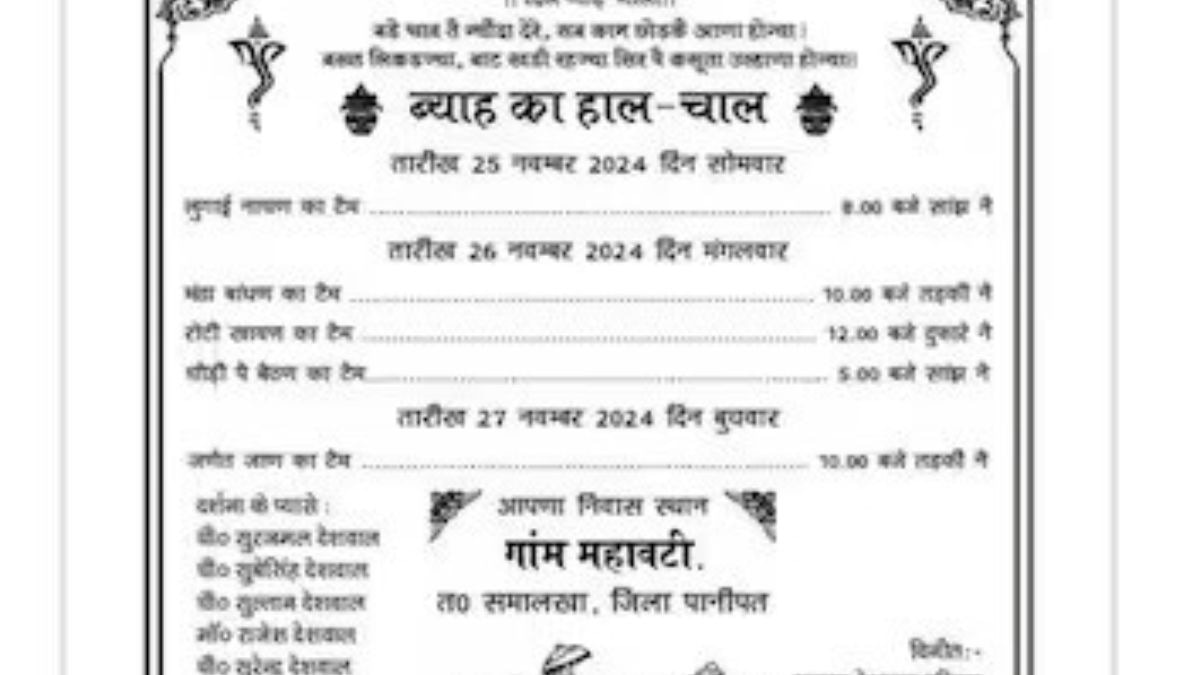 बडे चाव तै न्यौंदा देरे, सब काम छोडकै आणा होज्या।
बखत लिकडज्या, बाट खडी रहज्या सिर पै कसूता उल्हाणा होज्या॥
ब्याह का हाल-चाल
तारीख 25 नवम्बर 2024 दिन सोमवार
लुगाई नाचण का टैम ........ 8.00 बजे सांझ नै
तारीख 26 नवम्बर 2024 दिन मंगलवार
मंढा बांधण का टैम ........ 10.00 बजे तड़की नै
रोटी खावण का टैम ........ 12.00 बजे दुफारे नै
घोड़ी पै बैठण का टैम ........ 5.00 बजे सांझ नै
तारीख 27 नवम्बर 2024 दिन बुधवार
जणेत जाण का टैम ........ 10.00 बजे तड़की नै
दर्शना के प्यासे :
चौ० सुरजमल देशवाल
चौ० सुबेसिंह देशवाल
चौ० सुल्तान देशवाल
मॉ० राजेश देशवाल
चौ० सुरेन्द्र देशवाल
आपणा निवास स्थान
गांम महावटी.
त0 समालखा, जिला पानीपत
विनीत:-